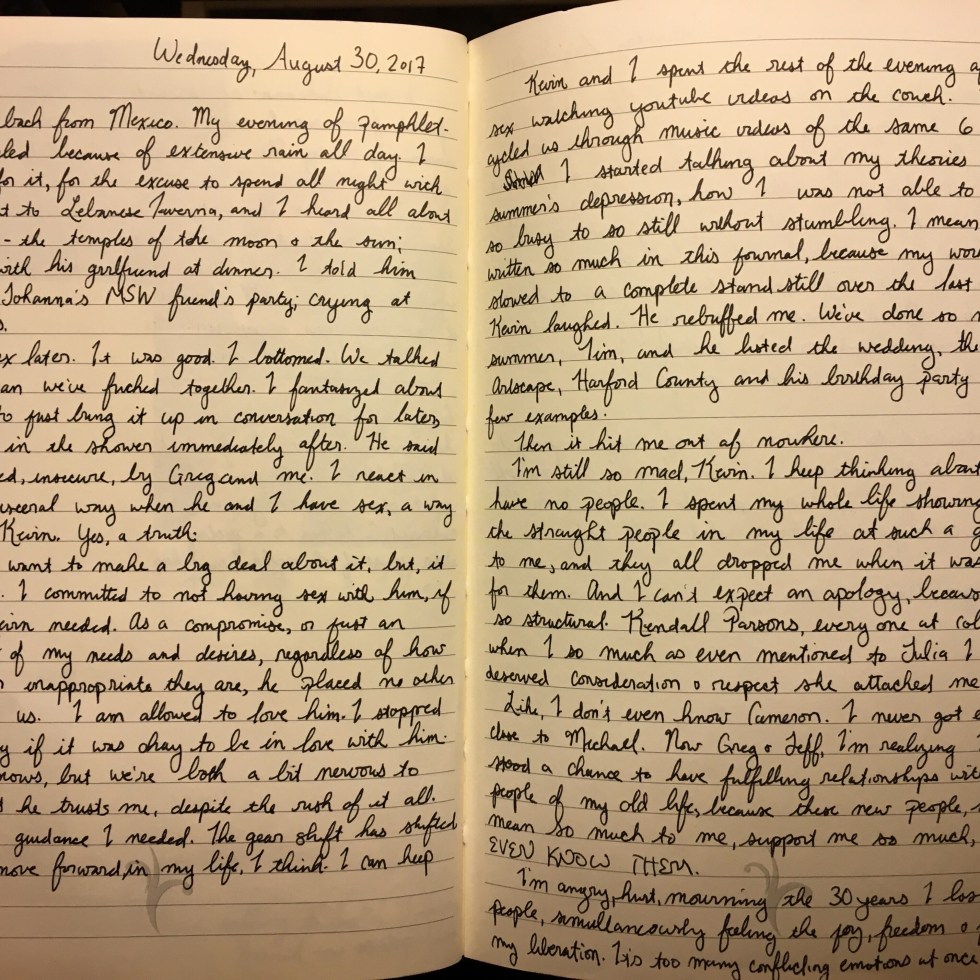 Wednesday, August 30, 2017
back from Mexico. My evening of pamphlet-
led because of extensive rain all day. I
for it, for the excuse to spend all night with
t to Lebanese Taverna, and I heard all about
- the temples of the moon & the sun;
with his girlfriend at dinner. I told him
Johanna's MSW friend's party; crying at
s.
ex later. It was good. I bottomed. We talked
an we've fucked together. I fantasized about
to just bring it up in conversation for later
in the shower immediately after. He said
ed, insecure, by Greg and me. I react in
visceral way when he and I have sex, a way
Kevin. Yes, a truth:
want to make a big deal about it, but, it
. I committed to not having sex with him, if
needed. As a compromise, or just an
of my needs and desires, regardless of how
inappropriate they are, he placed no other
us. I am allowed to love him. I stopped
y if it was okay to be in love with him.
nows, but we're both a bit nervous to
d he trusts me, despite the rush of it all.
guidance I needed. The gear shift has shifted
move forward, in my life, I think. I can keep
Kevin and I spent the rest of the evening a
sex watching youtube videos on the couch.
cycled us through music videos of the same 6
I started talking about my theories
summer's depression, how I was not able to
so busy to so still without stumbling. I mean
written so much in this journal, because my wor
slowed to a complete stand still over the last
Kevin laughed. He rebuffed me. We've done so m
summer, Tim, and he listed the wedding, the
Artscape, Harford County and his birthday party
few examples.
Then it hit me out of nowhere.
I'm still so mad, Kevin. I keep thinking about
have no people. I spent my whole life showing
the straight people in my life at such a g
to me, and they all dropped me when it was
for them. And I can't expect an apology, becaus
so structural. Kendall Parsons, every one at col
when I so much as even mentioned to Julia I
deserved consideration & respect she attacked me
Like, I don't even know Cameron. I never got
close to Michael. Now Greg & Jeff, I'm realizing
stood a chance to have fulfilling relationships wit
people of my old life, because these new people,
mean so much to me, support me so much,
EVEN KNOW THEM.
I'm angry, hurt, mourning the 30 years I los
people, simultaneously feeling the joy, freedom &
my liberation. Its too many conflicting emotions at once